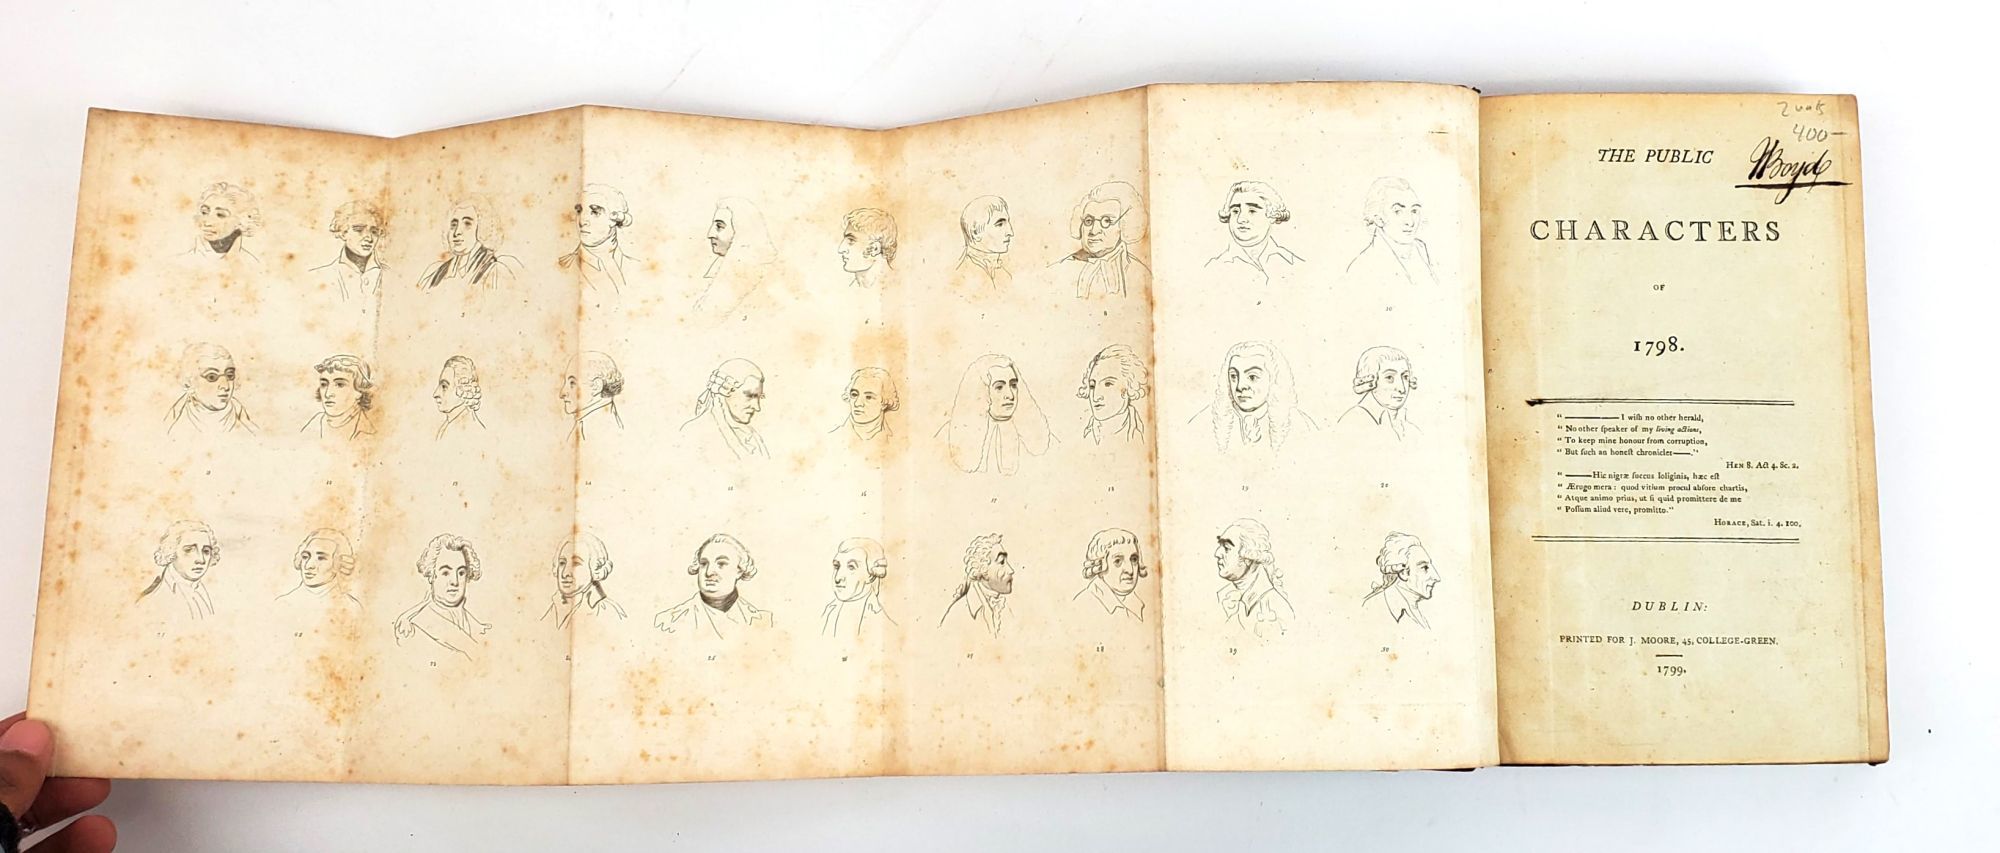 1 2 3 4 5 6 7 8 9 10
11 12 13 14 15 16 17 18 19 20
21 22 23 24 25 26 27 28 29 30
2 vols
400—
THE PUBLIC
Boyd
CHARACTERS
OF
1798.
“ ——— I wiſh no other herald,
“ No other ſpeaker of my living actions,
“ To keep mine honour from corruption,
“ But ſuch an honeſt chronicler—.”
HEN 8. Act 4. Sc. 2.
“ ——Hic nigræ ſuccus loliginis, hæc eſt
“ Ærugo mera: quod vitium procul abfore chartis,
“ Atque animo prius, ut ſi quid promittere de me
“ Poſſum aliud vere, promitto.”
HORACE, Sat. i. 4. 100.
DUBLIN:
PRINTED FOR J. MOORE, 45, COLLEGE-GREEN.
1799.